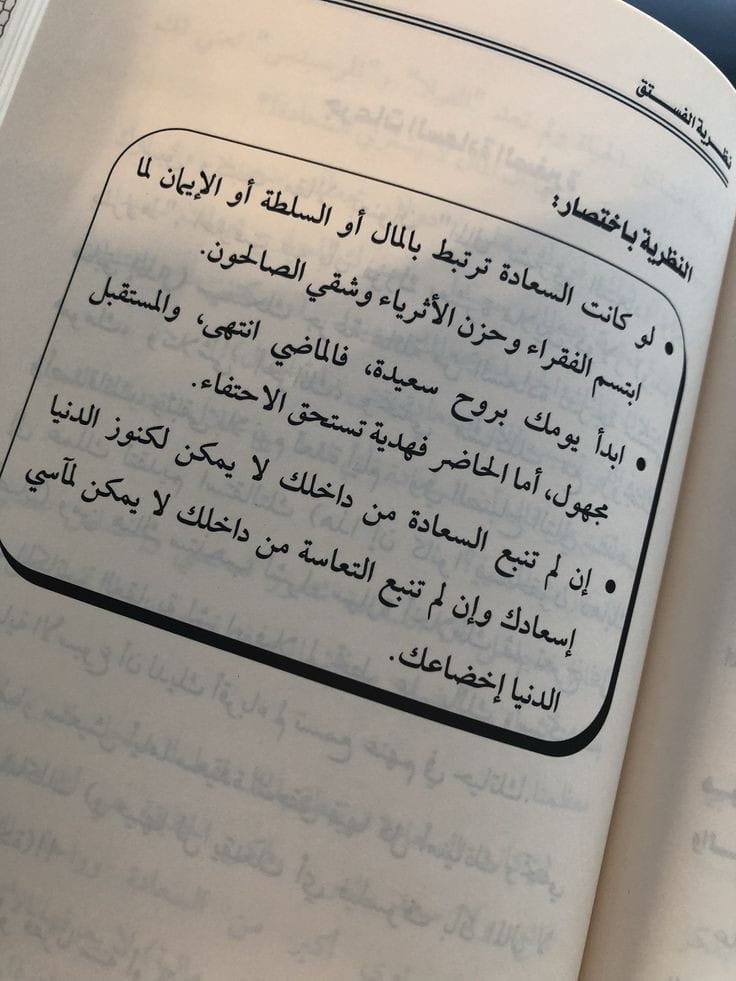 نظرية الفستق
النظرية باختصار:
• لو كانت السعادة ترتبط بالمال أو السلطة أو الإيمان لما
ابتسم الفقراء وحزن الأثرياء وشقي الصالحون.
• ابدأ يومك بروح سعيدة، فالماضي انتهى، والمستقبل
مجهول، أما الحاضر فهدية تستحق الاحتفاء.
• إن لم تنبع السعادة من داخلك لا يمكن لكنوز الدنيا
إسعادك وإن لم تنبع التعاسة من داخلك لا يمكن لمآسي
الدنيا إخضاعك.